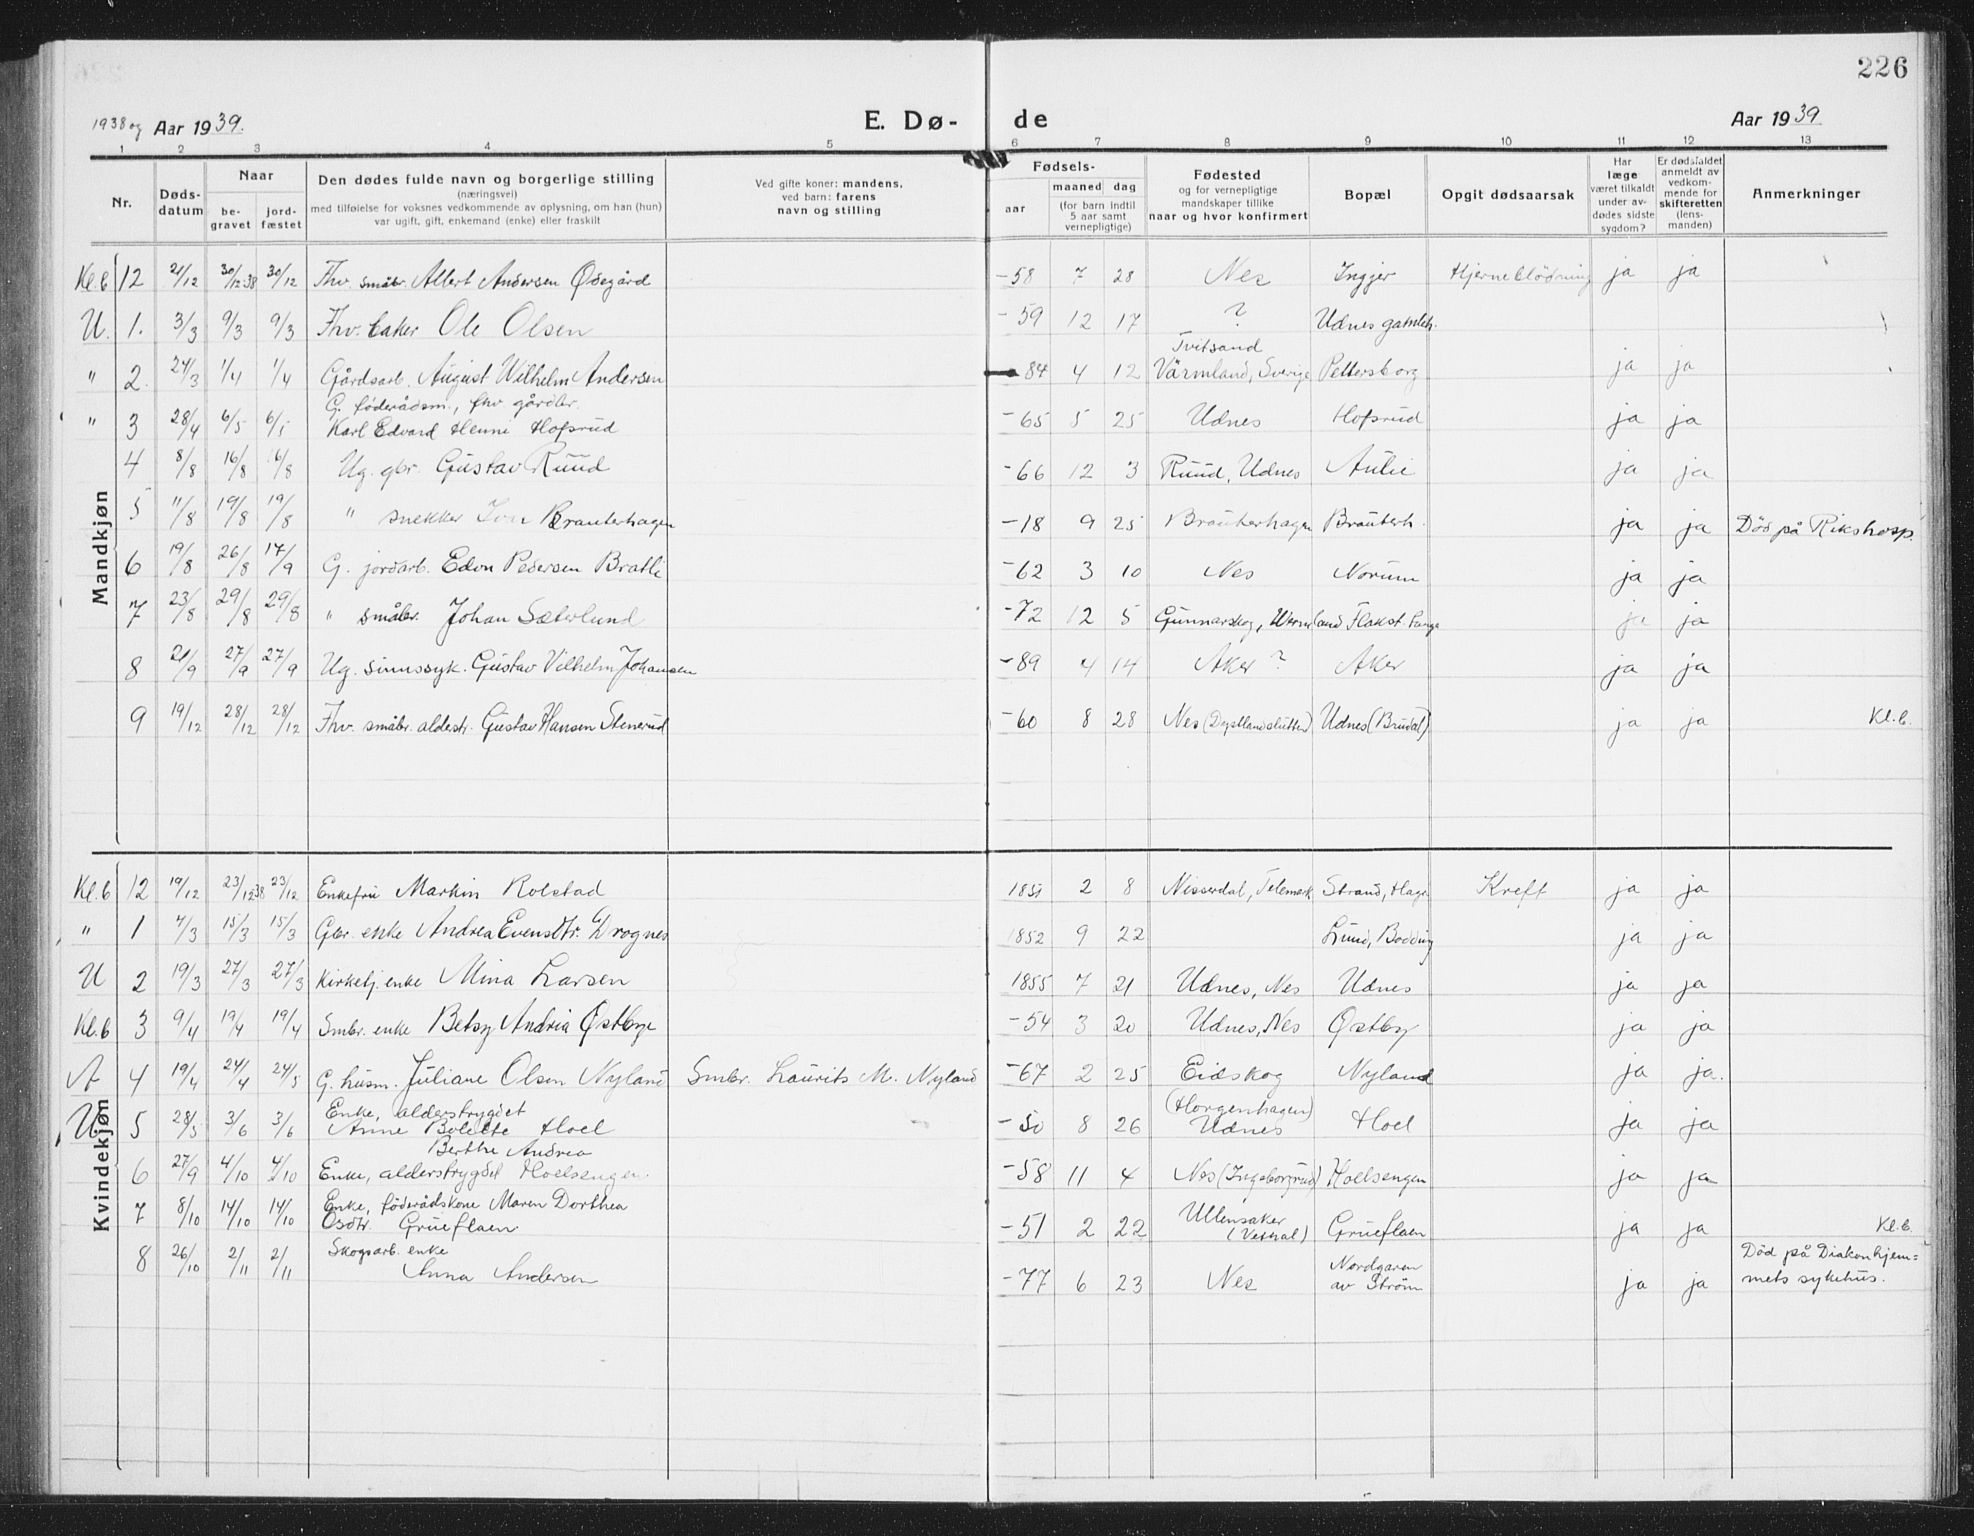 226
1938 og Aar 1939.
E. Dø-
de
Aar 1939
1 2 3 4 5 6 7 8 9 10 11 12 13
Nr.
Døds-
datum
Naar
be-
gravet
jord-
fæstet
Den dødes fulde navn og borgerlige stilling
(næringsvei)
med tilføielse for voksnes vedkommende av oplysning, om han (hun)
var ugift, gift, enkemand (enke) eller fraskilt
Ved gifte koner: mandens,
ved barn: farens
navn og stilling
Fødsels-
aar
maaned dag
(for barn indtil
5 aar samt
vernepligtige)
Fødested
og for vernepligtige
mandskaper tillike
naar og hvor konfirmert
Bopæl
Opgit dødsaarsak
Har
læge
været tilkaldt
under av-
dødes sidste
sygdom?
Er dødsfaldet
anmeldt av
vedkom-
mende for
skifteretten
(lens-
manden)
Anmerkninger
Mandkjøn
Kl.b 12 21/12 30/12 38 30/12 Fhv. småbr. Albert Andersen Ødegård -58 7 28 Nes Ingjer Hjerneblödning ja ja
U. 1. 3/3 9/3 9/3 Fhv. baker Ole Olsen -59 12 17 ? Udnes gamleh.
" 2. 24/3 1/4 1/4 Gårdsarb. August Wilhelm Andersen -84 4 12 Tvitsand
Värmland, Sverige Pettersborg ja ja
" 3 28/4 6/5 6/5 G. föderådsm., fhv. gårdbr.
Karl Edvard Henni Hofsrud -65 5 25 Udnes Hofsrud ja ja
4 8/8 16/8 6/8 Ug. gbr. Gustav Ruud -66 12 3 Ruud, Udnes Aulie ja ja
5 11/8 19/8 19/8 " snekker Brauterhagen -18 9 25 Brauterhagen Brauterh. ja ja Död på Rikshosp.
6 19/8 26/8 17/9 G. jordarb. Edvn Pedersen Bratli -62 3 10 Nes Norum ja ja
7 23/8 29/8 29/8 " småbr. Johan Sæterlund -72 12 5 Gunnarskog, Wermland Flakst. ja ja
8 21/9 27/9 27/9 Ug. sinnssyk. Gustav Vilhelm Johansen -89 4 14 Aker ? Aker ja ja
9 19/12 28/12 28/12 Fhv. småbr. alderstr. Gustav Hansen Stenerud -60 8 28 Nes Udnes (Brudal) ja ja Kl.b.
Kvindekjøn
Kl.b 12 19/12 23/12 38 23/12 Enkefru Markin Rolstad 1851 2 8 Nisserdal, Telemark Strand, Haga Kreft ja ja
" 1 7/3 15/3 15/3 Gbr. enke Andrea Evensdtr. Drognes 1852 9 22 Lund, Bodding ja ja
U 2 19/3 27/3 27/3 Kirketj. enke Mina Larsen 1855 7 21 Udnes, Nes Udnes ja ja
Kl.b 3 9/4 19/4 19/4 Smbr. enke Betsy Andria Østbye -54 3 20 Udnes, Nes Østby ja ja
A 4 19/4 24/4 24/5 G. husm. Juliane Olsen Nyland Smbr. Laurits M. Nyland -67 2 25 Eidskog Nyland ja ja.
U 5 28/5 3/6 3/6 Enke, alderstrygdet
Anne Bolette Hoel -50 8 26 (Horgenhagen)
Udnes Hoel ja ja
6 27/9 4/10 4/10 Berthe Andrea
Enke, alderstrygdet Hoelsengen. -58 11 4 Nes (Ingeborgrud) Hoelsengen ja ja
7 8/10 14/10 14/10 Enke, föderådskone Maren Dorthea
Osdtr. Grueflaen -51 2 22 Ullensaker
(Vesthal) Grueflaen ja ja Kl.b.
8 26/10 2/11 2/11 Skogsarb. enke
Anna Andersen -77 6 23 Nes Nordgaren
av Ström ja ja Död på Diakonhjem=
mets sykehus.